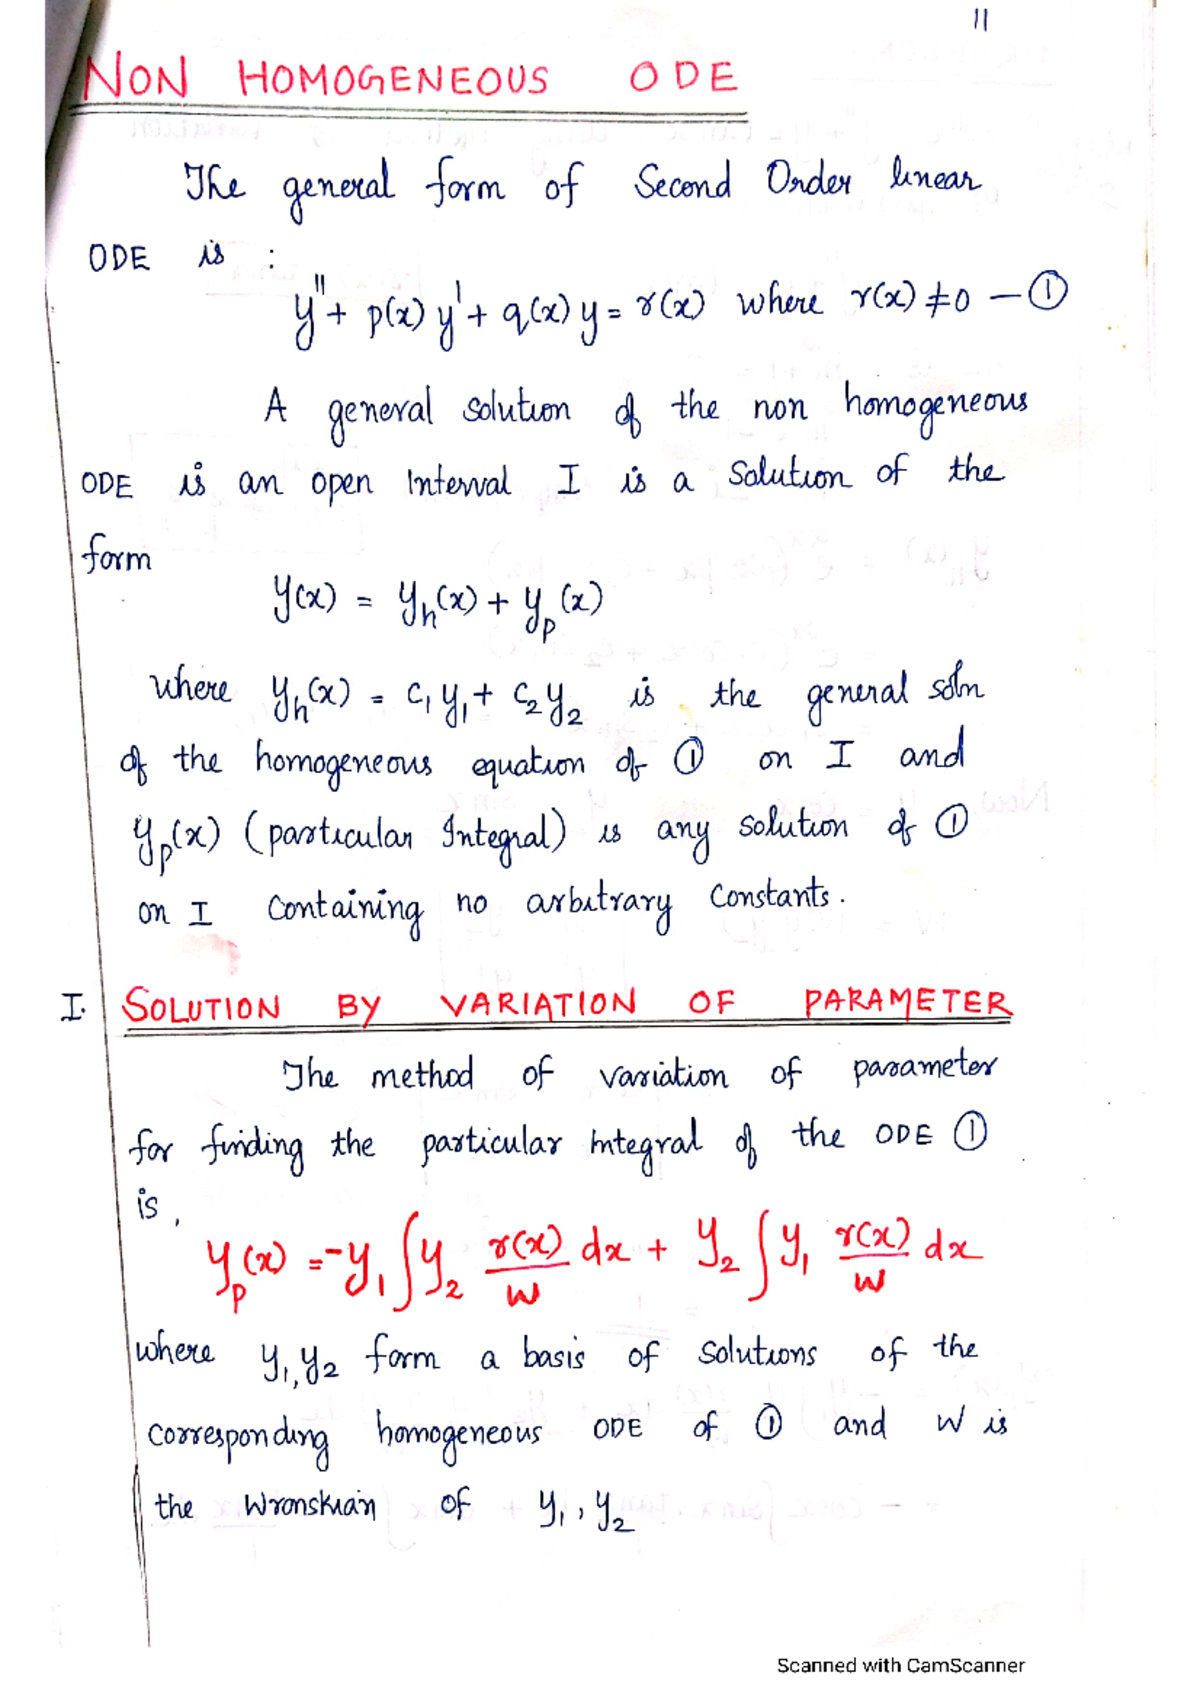 11
NON HOMOGENEOUS ODE
The general form of Second Order linear
ODE is :
y'' + p(x) y' + q(x) y = r(x) where r(x) ≠ 0 — ①
A general solution of the non homogeneous
ODE is an open Interval I is a Solution of the
form
y(x) = y_h(x) + y_p(x)
where y_h(x) = c₁ y₁ + c₂ y₂ is the general soln
of the homogeneous equation of ① on I and
y_p(x) (particular Integral) is any solution of ①
on I Containing no arbitrary Constants.
I. SOLUTION BY VARIATION OF PARAMETER
The method of variation of parameter
for finding the particular integral of the ODE ①
is,
y_p(x) = -y₁ ∫ y₂ r(x)/W dx + y₂ ∫ y₁ r(x)/W dx
where y₁, y₂ form a basis of solutions of the
corresponding homogeneous ODE of ① and W is
the Wronskian of y₁, y₂
Scanned with CamScanner